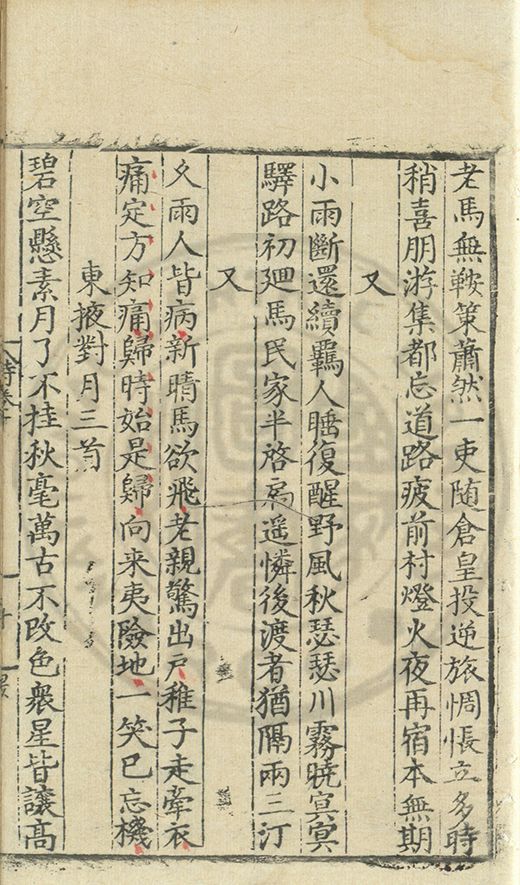 老馬無鞍策蕭然一吏随倉皇投逆旅惆悵立多時
稍喜朋游集都忘道路疲前村燈火夜再宿本無期
又
小雨斷還續羈人睡復醒野風秋瑟瑟川霧曉冥冥
驛路初廻馬民家半啓扃遥憐後渡者猶隔兩三汀
又
久雨人皆病新晴馬欲飛老親驚出戸稚子走牽衣
痛定方知痛歸時始是歸向来夷險地一笑已忘機
東掖對月三首
碧空懸素月了不挂秋毫萬古不改色衆星皆讓髙